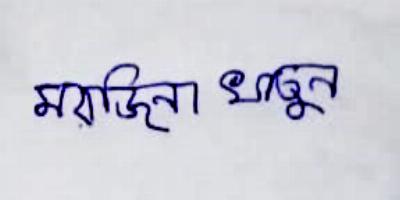 মরজিনা খাতুন